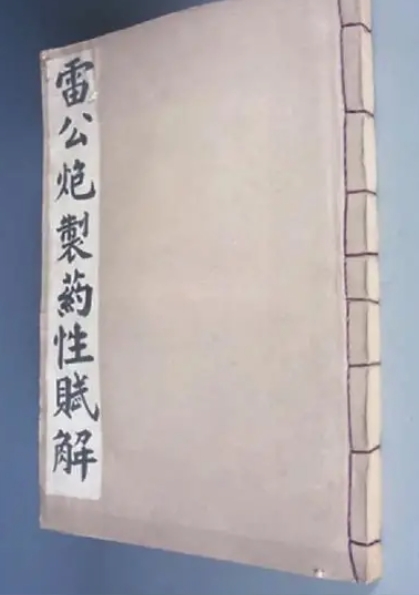 雷公炮製药性賦解